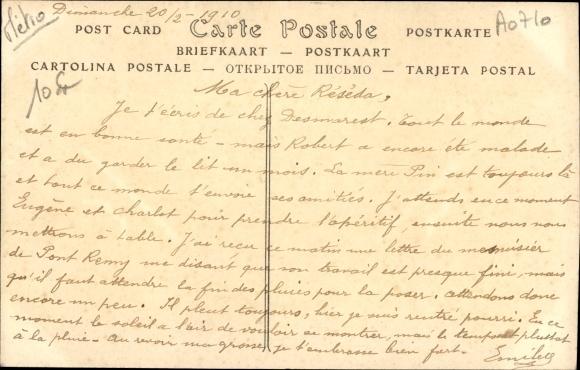 Dimanche 20/2-1910
Métro
A0710
Carte Postale
POST CARD
POSTKARTE
BRIEFKAART — POSTKAART
CARTOLINA POSTALE — ОТКРЫТОЕ ПИСЬМО — TARJETA POSTAL
10 fr
Ma chère Réséda,
Je t'écris de chez Desmarest. Tout le monde
est en bonne santé - mais Robert a encore été malade
et a du garder le lit un mois. La mère Pin est toujours là
et tout ce monde t'envoie ses amitiés. J'attends en ce moment
Eugène et Charlot pour prendre l'apéritif, ensuite nous nous
mettrons à table. J'ai reçu ce matin une lettre du menuisier
de Pont Remy me disant que son travail est presque fini, mais
qu'il faut attendre la fin des pluies pour la poser. attendons donc
encore un peu. Il pleut toujours, hier je suis rentré pourri. En ce
moment le soleil a l'air de vouloir se montrer, mais le temps est plustot
à la pluie - au revoir ma grosse, je t'embrasse bien fort.